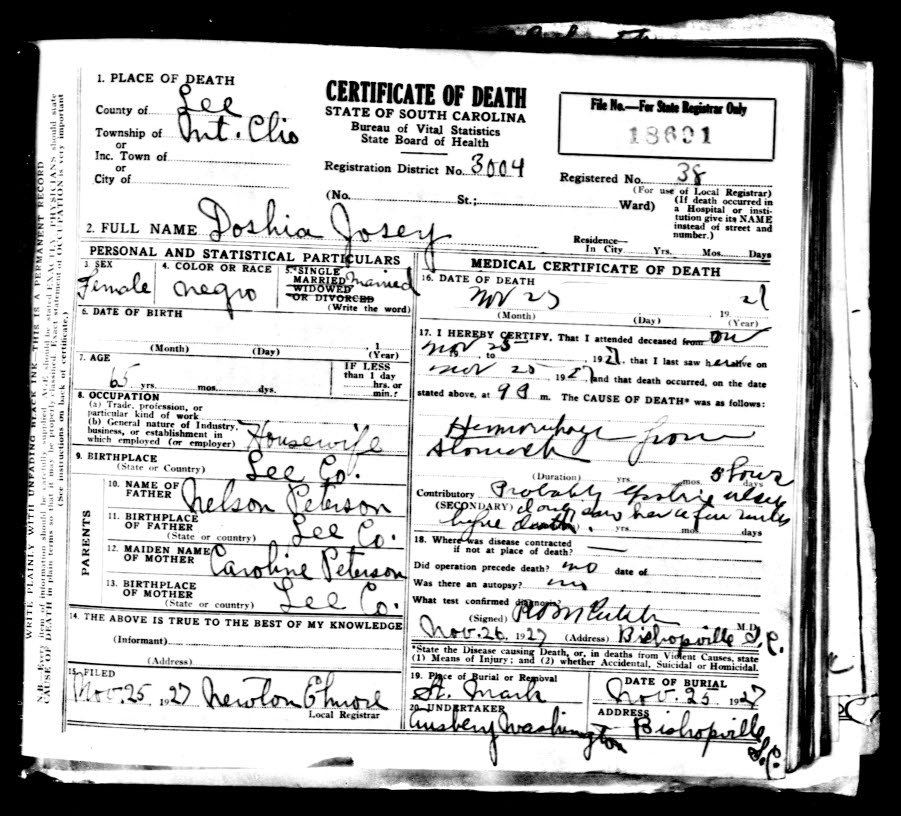 1. PLACE OF DEATH
County of Lee
Township of Mt. Clio
or
Inc. Town of
or
City of
CERTIFICATE OF DEATH
STATE OF SOUTH CAROLINA
Bureau of Vital Statistics
State Board of Health
Registration District No. 3004
File No.—For State Registrar Only
18691
Registered No. 38
(For use of Local Registrar)
(No. St.; Ward)
(If death occurred in
a Hospital or insti-
tution give its NAME
instead of street and
number.)
2. FULL NAME Doshia Josey
Residence—
In City Yrs. Mos. Days
PERSONAL AND STATISTICAL PARTICULARS
3. SEX
Female
4. COLOR OR RACE
negro
5. SINGLE
MARRIED
WIDOWED
OR DIVORCED
Married
(Write the word)
6. DATE OF BIRTH
, 1
(Month) (Day) (Year)
7. AGE
65 yrs. mos. dys.
IF LESS
than 1 day
hrs. or
min.?
8. OCCUPATION
(a) Trade, profession, or
particular kind of work
(b) General nature of Industry,
business, or establishment in
which employed (or employer) Housewife
9. BIRTHPLACE
(State or Country) Lee Co.
PARENTS
10. NAME OF
FATHER Nelson Peterson
11. BIRTHPLACE
OF FATHER
(State or country) Lee Co.
12. MAIDEN NAME
OF MOTHER Caroline Peterson
13. BIRTHPLACE
OF MOTHER
(State or country) Lee Co.
14. THE ABOVE IS TRUE TO THE BEST OF MY KNOWLEDGE
(Informant)
(Address)
15. FILED
Nov. 25, 1927 Newton Elmore
Local Registrar
MEDICAL CERTIFICATE OF DEATH
16. DATE OF DEATH
Nov 25, 19
(Month) (Day) (Year)
17. I HEREBY CERTIFY, That I attended deceased from on
Nov 25, to , 1927, that I last saw her alive on
Nov 25, 1927, and that death occurred, on the date
stated above, at 9 m. The CAUSE OF DEATH* was as follows:
Hemorrhage from
stomach
(Duration) yrs. mos. days
hours
Contributory Probably ulcer
(SECONDARY) I only saw her a few
death. yrs. mos. days
18. Where was disease contracted
if not at place of death?
Did operation precede death? no date of
Was there an autopsy? no
What test confirmed diagnosis?
(Signed) M.D.
Nov. 26, 1927 (Address) Bishopville S.C.
*State the Disease causing Death, or, in deaths from Violent Causes, state
(1) Means of Injury; and (2) whether Accidental, Suicidal or Homicidal.
19. Place of Burial or Removal
St. Mark
DATE OF BURIAL
Nov. 25, 1927
20. UNDERTAKER
Washington
ADDRESS
Bishopville
S.C.
WRITE PLAINLY WITH UNFADING BLACK INK—THIS IS A PERMANENT RECORD
N.B.—Every item of information should be carefully supplied. AGE should be stated EXACTLY. PHYSICIANS should state
CAUSE OF DEATH in plain terms so that it may be properly classified. Exact statement of OCCUPATION is very important
(See instructions on back of certificate.)